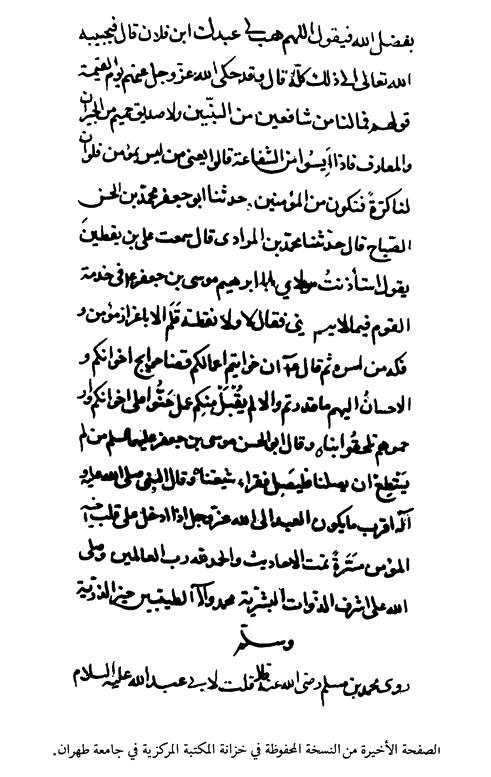 بفضل الله فيقول اللهم هب لي عبدك ابن فلان قال فيجيبه
الله تعالى الى ذلك كله قال وقد حكى الله عز وجل عنهم يوم القيمة
قولهم فما لنا من شافعين من النبيين ولا صديق حميم من الجيران
والمعارف فاذا ايسوا من الشفاعة قالوا يعنى من ليس بمؤمن فلو ان
لنا كرةً فنكون من المؤمنين حدثنا ابو جعفر محمد بن الحسن
الصباح قال حدثنا محمد بن المرادى قال سمعت على بن يقطين
يقول استأذنتُ مولاي ابرهيم موسى بن جعفر ع فى خدمة
القوم فيما لا يثلم دينى فقال لا ولا نقطة قلم الا باعزاز مؤمن و
فكه من اسره ثم قال ع ان خواتيم اعمالكم قضاء حوايج اخوانكم و
الاحسانُ اليهم ما قدرتم والا لم يُقبَل منكم عمل حَنُّوا على اخوانكم وار
حموهم تلحقوا بنا وقال ابو الحسن موسى بن جعفر عليهما السلم من لم
يستطع ان يصلنا فليصل فقراء شيعتنا وقال النبى صلى الله عليه و
آله اقرب ما يكون العبد الى الله عز وجل اذا ادخل على قلب اخيه
المؤمن مسَرةً تمت الاحاديث والحمد لله رب العالمين وصلى
الله على اشرف الذوات البشرية محمد وآله الطيبين خير الذرية
وسلم
روى محمد بن مسلم رضى الله عنه قال قلت لابي عبد الله عليه السلام
الصفحة الأخيرة من النسخة المحفوظة في خزانة المكتبة المركزية في جامعة طهران.